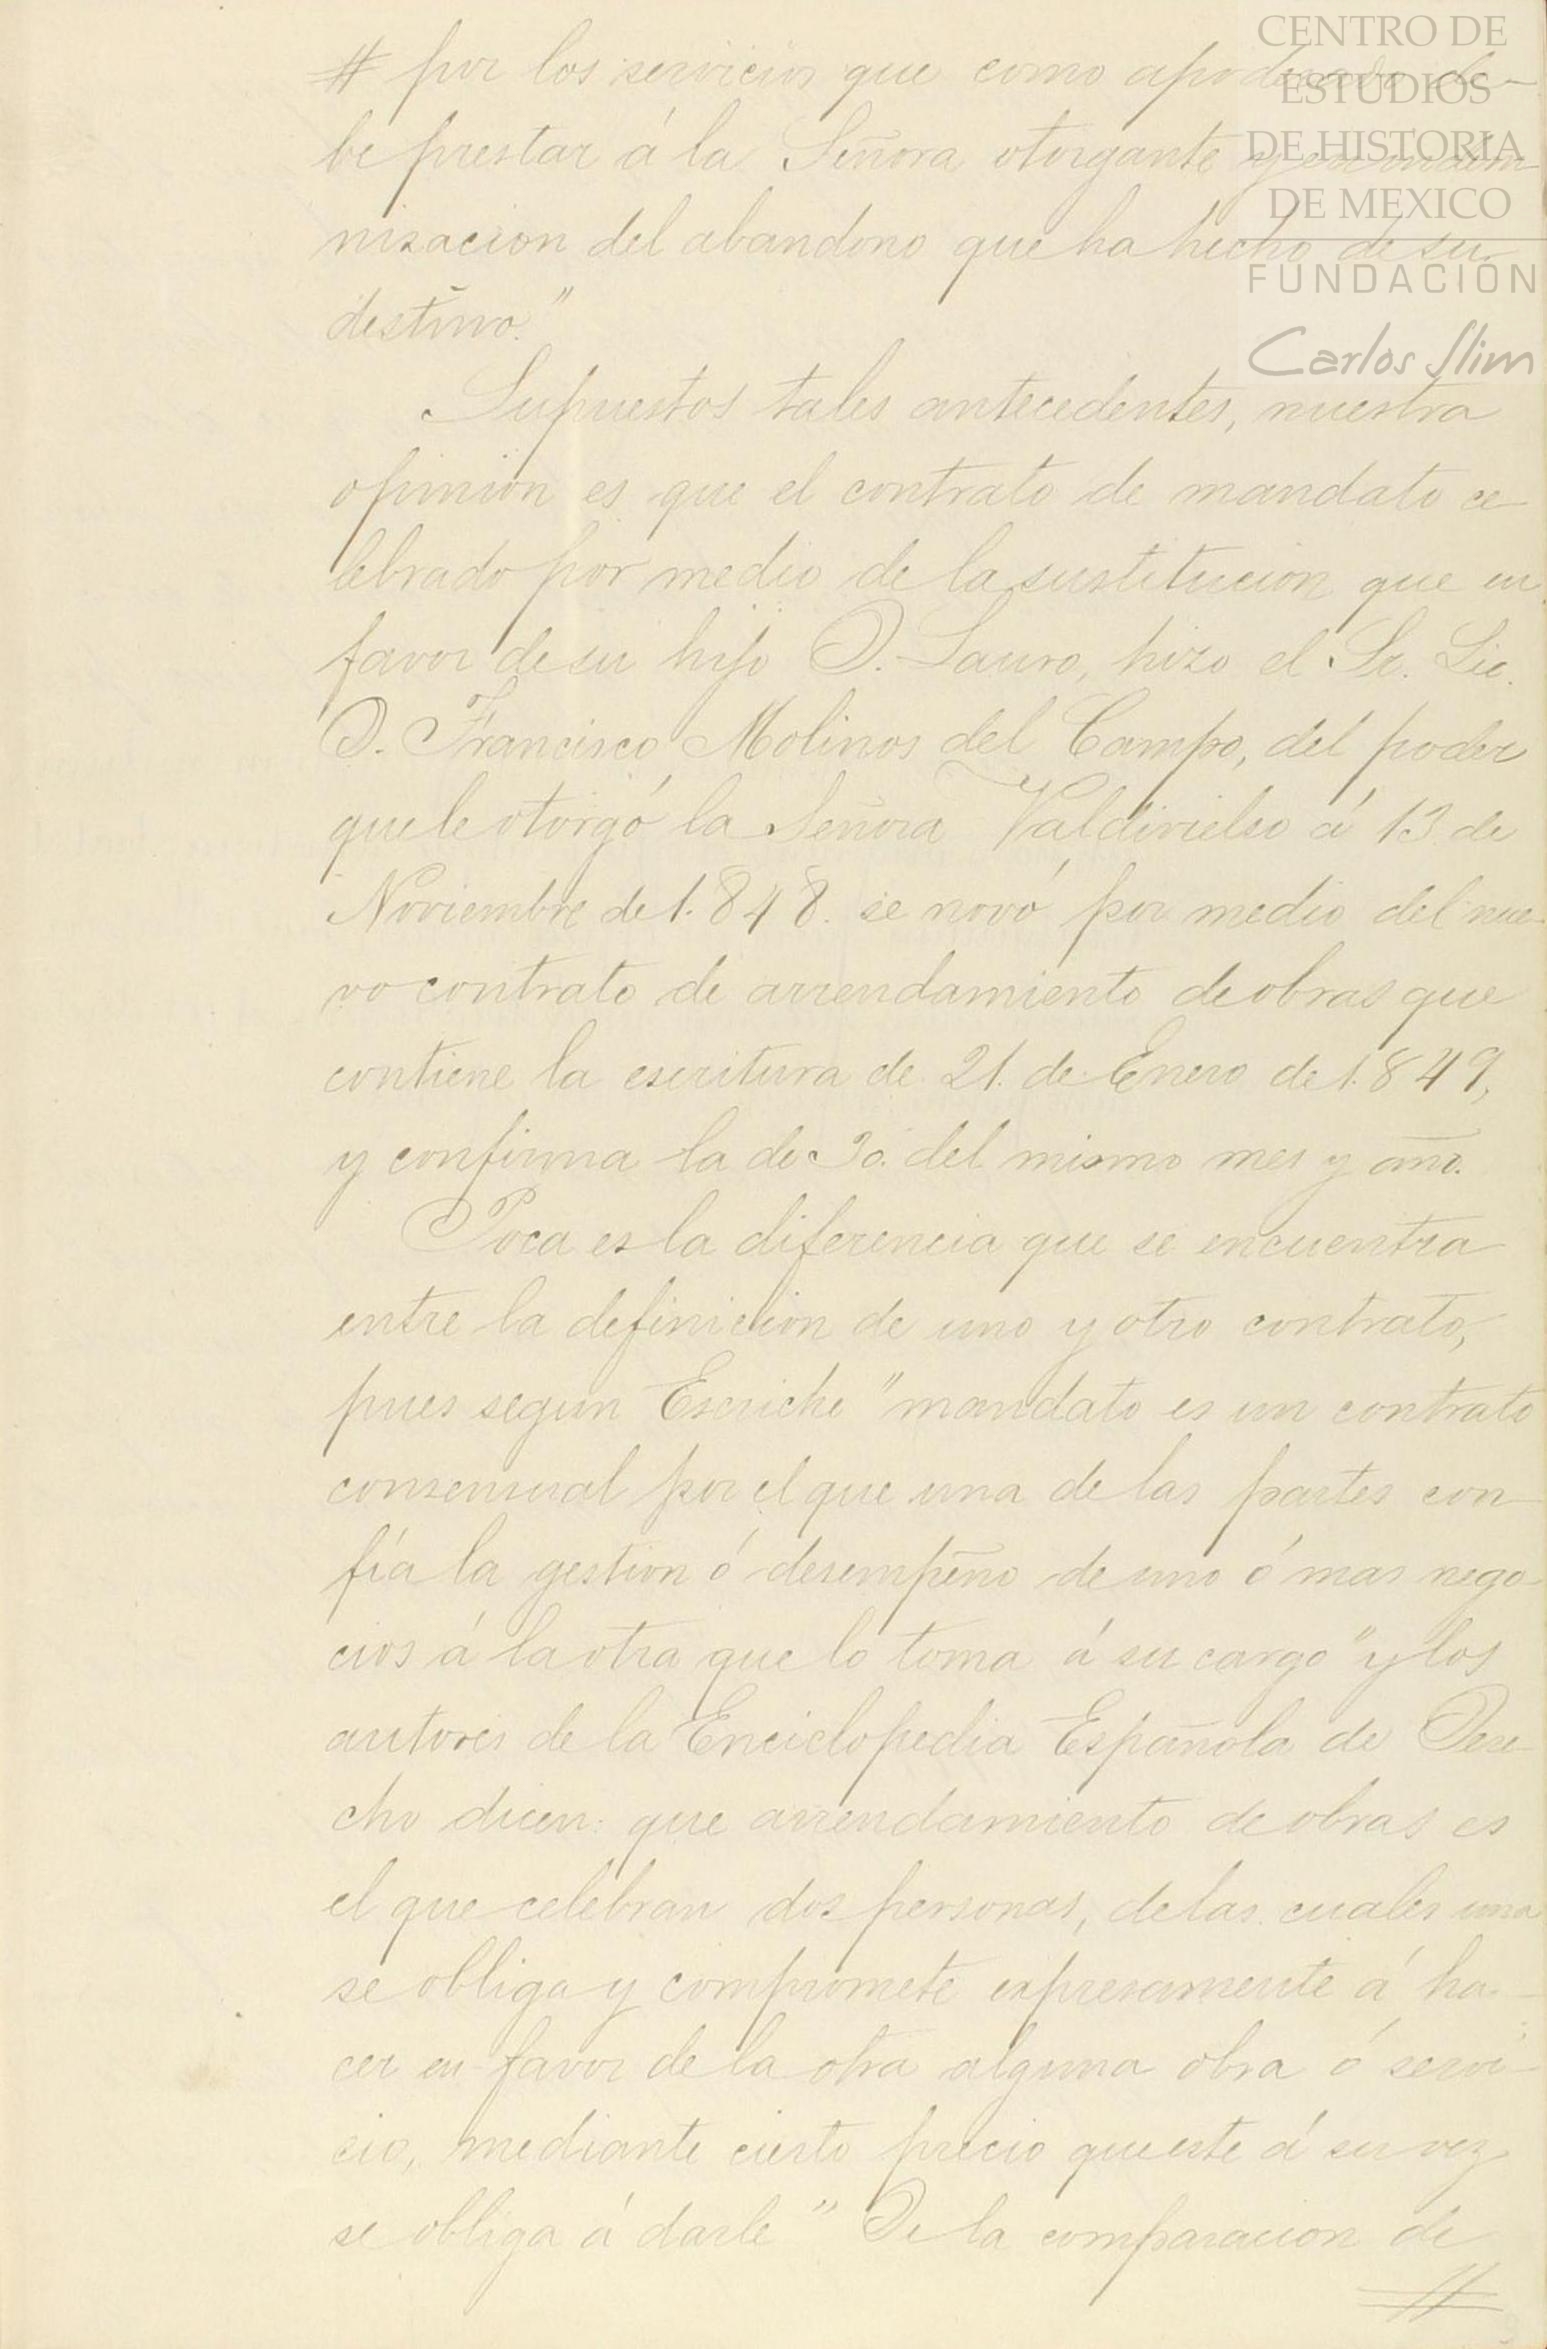 # por los servicios que como apoderado de-
be prestar á la Señora otorgante y en indem-
nisacion del abandono que ha hecho de su
destino."
Supuestos tales antecedentes, nuestra
opinion es que el contrato de mandato ce-
lebrado por medio de la sustitucion que en
favor de su hijo D. Lauro, hizo el Sr. Lic.
D. Francisco Molinos del Campo, del poder
que le otorgó la Señora Valdivielso á 13 de
Noviembre de 1.848. se novó por medio del nue-
vo contrato de arrendamiento de obras que
contiene la escritura de 21. de Enero de 1.849,
y confirma la de 30. del mismo mes y año.
Poca es la diferencia que se encuentra
entre la definicion de uno y otro contrato,
pues segun Escriche "mandato es un contrato
consensual por el que una de las partes con-
fía la gestion ó desempeño de uno ó mas nego-
cios á la otra que lo toma á su cargo" y los
autores de la Enciclopedia Española de Dere-
cho dicen: que arrendamiento de obras es
el que celebran dos personas, de las cuales una
se obliga y compromete expresamente á ha-
cer en favor de la otra alguna obra ó servi-
cio, mediante cierto precio que este á su vez
se obliga á darle" De la comparacion de
#
CENTRO DE
ESTUDIOS
DE HISTORIA
DE MEXICO
FUNDACIÓN
Carlos Slim